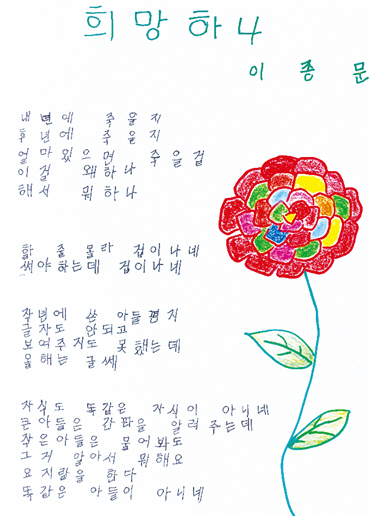 희망하나
이종문
내년에 죽을지
후년에 죽을지
얼마있으면 죽을겁
이걸 왜하나
해서 뭐하나
할줄 몰라 겁이나네
써야하는데 겁이나네
작년에 쓴 아들평지
글자도 안되고
보여주지도 못했는데
올해는 글쎄
자식도 똑같은 자식이 아니네
큰아들은 간판을 알려주는데
작은아들은 물어봐도
그거 알아서 뭐해요
요지랄을 한다
똑같은 아들이 아니네